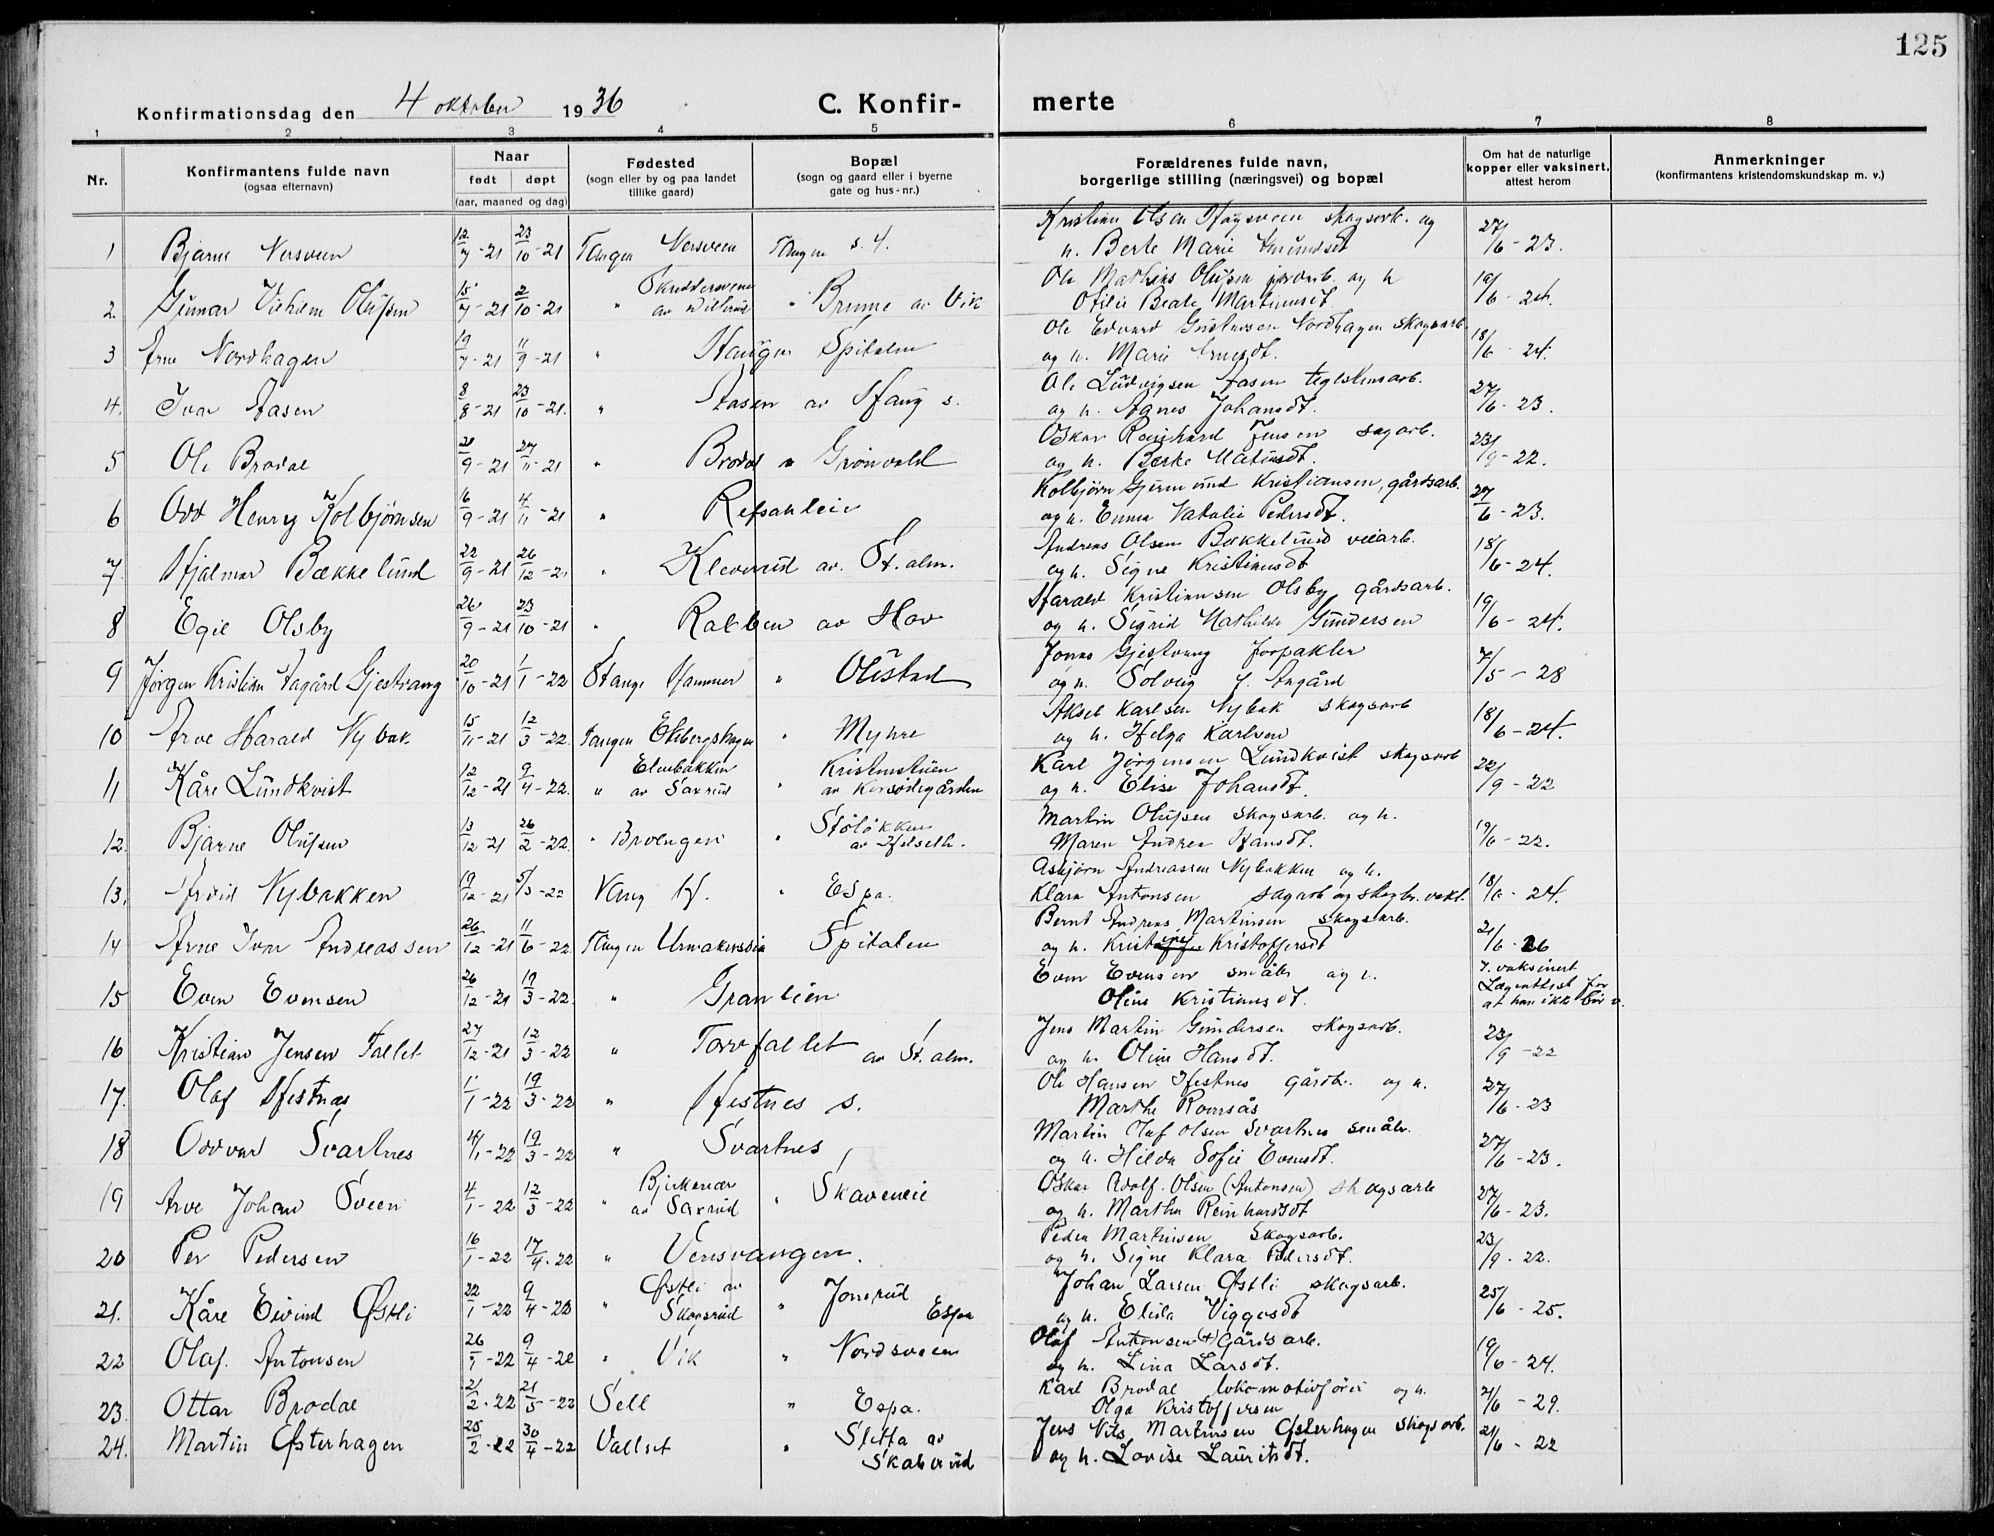 125
Konfirmationsdag den 4 oktober 1936 C. Konfir- merte
1 2 3 4 5 6 7 8
Nr. Konfirmantens fulde navn (ogsaa efternavn) Naar født døpt (aar, maaned og dag) Fødested (sogn eller by og paa landet tillike gaard) Bopæl (sogn og gaard eller i byerne gate og hus-nr.) Forældrenes fulde navn, borgerlige stilling (næringsvei) og bopæl Om hat de naturlige kopper eller vaksinert, attest herom Anmerkninger (konfirmantens kristendomskundskap m. v.)
1 Bjarne Nersveen 12/7-21 23/10-21 Tangen Nersveen Tangen s. 4. Kristian Olsen skogsarb. og
h. Berte Marie 27/6-23.
2 Gunnar Olufsen 15/7-21 2/10-21 " " Brune av Vik Ole Mathias Olufsen og h
Otilie Beate Martinusdt. 19/6-24.
3 Arne Nordhagen 19/7-21 11/9-21 " Haugen Spitalen Ole Edvard Gustavsen Nordhagen skogsarb.
og h. Marie 18/6-24.
4. Ivar Aasen 8/8-21 23/10-21. " Aasen av Haug s. Ole Ludvigsen Aasen
og h. Agnes Johansdt. 27/6-23.
5 Ole Brodal 9-21 27/11-21 " Brodal " Grønvold Oskar Reinhard Jensen sagarb.
og h. Berte 23/9-22.
6 Odd Henry Kolbjørnsen 16/9-21 4/11-21 " Refsahleie Kolbjørn Kristiansen, gårdsarb.
og h. Emma Natalie Pedersdt. 27/6-23.
7. Hjalmar Bækkelund 22/9-21 26/12-21 " Kleverud av St. alm. Andreas Olsen Bækkelund veiarb.
og h. Signe Kristiansdt 18/6-24.
8 Egil Olsby 26/9-21 23/10-21 " Rabben av Hov Harald Kristiansen Olsby gårdsarb.
og h. Sigrid Mathilde Gundersen 19/6-24.
9 Jørgen Kristian Aagård Gjestvang 20/10-21 1/1-22 Stange Hammer " Olistad Jonas Gjestvang forpakter
og h. Solveig f. Aagård 7/5-28
10 Arve Harald Nybak. 15/11-21 12/3-22 Tangen Ekebergshagen " Myhre Aksel Karlsen Nybak skogsarb
og h. Helga Karlsen 18/6-24.
11 Kåre Lundkvist 12/12-21 9/4-22. " Elvebakken av Saxrud " Kristinstuen av Korsødegården Karl Jørgensen Lundkvist skogsarb
og h. Elise Johansdt. 22/9-22
12. Bjarne Olufsen 13/12 21 26/2-22. " Brolengen " Stoløkken av Helseth. Martin Olufsen skogsarb. og h.
Maren Andrea Hansdt. 19/6-22.
13. Arvid Nybakken 19/12-21 5/3-22 Vang H. " Espa. Asbjørn Andreassen Nybakken og h.
Klara Antonsen sagarb og skogbr. vakt. 18/6-24.
14 Arne Ivar Andreassen 26/12-21 11/6-22 Tangen Urmakerslia Spitalen Bernt Andreas Martinsen skogsarb.
og h. Kristine Kristoffersdt 21/6-26
15 Even Evensen 26/12-21 19/3-22. " Granlien Even Evensen småbr og h.
Oline Kristiansdt. I. vaksinert Lægeattest for at han ikke bør v.
16 Kristian Jensen Fallet 27/12-21 12/3-22 " Torvfallet av St. alm. Jens Martin Gundersen skogsarb.
og h. Oline Hansdt. 23/9-22
17. Olaf Hestnæs 1/1-22 19/3-22 " Hestnes s. Ole Hansen Hestnes gårdbr. og h.
Marthe Romsås 27/6-23
18 Oddvar Svartnes 4/1-22 19/3-22 " Svartnes Martin Olaf Olsen Svartnes småbr.
og h. Hilda Sofie Evensdt. 27/6-23.
19 Arve Johan Sveen 4/1-22 12/3-22 " Bjerkenær av Saxrud " Skaveneie Oskar Adolf Olsen (Antonsen) skogsarb
og h. Martha Reinhardsdt 27/6-23.
20 Per Pedersen 16/1-22 17/4-22 " Vensvangen. Peder Martinsen skogsarb.
og h. Signe Klara Pedersdt. 23/9-22.
21. Kåre Eivind Østli 22/1-22 9/4-22 " Østli av Skogsrud " Jonsrud Espa Johan Larsen Østli skogsarb.
og h. Elida Viggosdt 25/6-25.
22 Olaf. Antonsen 26/1-22 9/4-22 " Vik " Nordsveen Olaf Antonsen (+) Gårdsarb.
og h. Lina Larsdt. 19/6-24.
23. Ottar Brodal 21/2-22 21/5-22 Sell " Espa. Karl Brodal lokomotivfører og h.
Olga Kristoffersen 21/6-29.
24. Martin Østerhagen 25/2-22 30/4-22 Vallset " Sletta av Skaberud Jens Nils Martinsen Østerhagen skogsarb.
og h. Lovise Lauritsdt. 21/6-22